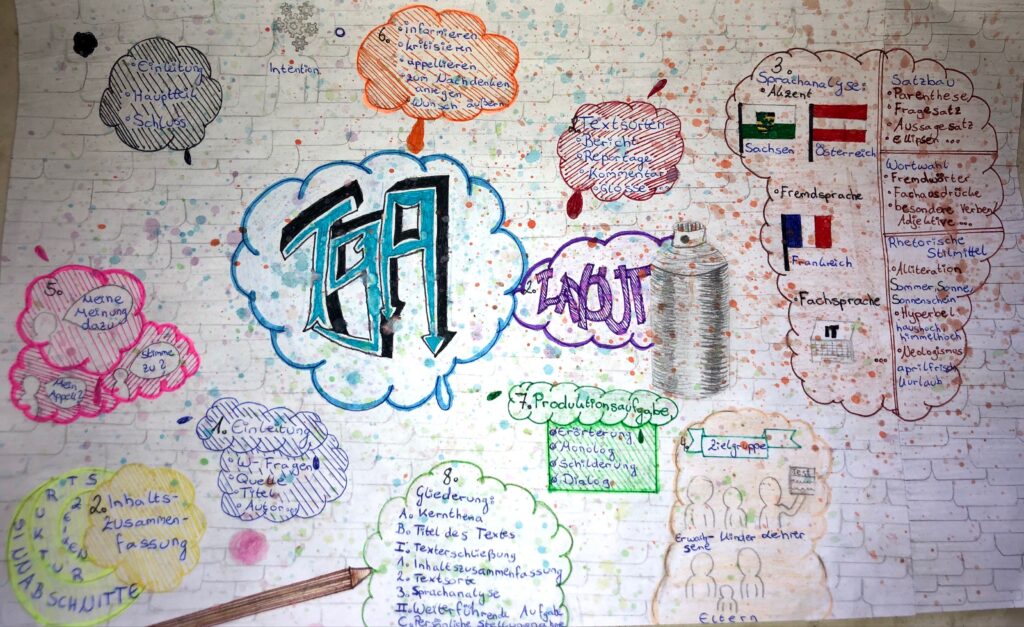 • Einleitung
• Hauptteil
• Schluss
Intention
6.
• informieren
• kritisieren
• appellieren
• zum Nachdenken
anregen
• Wunsch äußern
Textsorten
• Bericht
• Reportage
• Kommentar
• Glosse
3.
Sprachanalyse:
• Akzent
Sachsen
Österreich
• Fremdsprache
Frankreich
• Fachsprache
IT
...
Satzbau
• Parenthese
• Fragesatz
• Aussagesatz
• ellipsen ...
Wortwahl
• Fremdwörter
• Fachausdrücke
• besondere Verben/
Adjektive ...
Rhetorische
Stilmittel
• Alliteration
Sommer, Sonne,
Sonnenschein
• Hyperbel
haushoch
himmelhoch
• Neologismus
aprilfrisch
Uurlaub
TGA
2.
LAYOUT
5.
Meine
Meinung
dazu
Stimme
zu?
Mein
Appell?
1. Einleitung
• W-Fragen
• Quelle
• Titel
• Autor
2. Inhalts-
zusammen-
fassung
TEXT
STRUKTUR
SINNABSCHNITTE
7. Produktionsaufgabe
Erörterung
Monolog
Schilderung
Dialog
8.
Gliederung:
A. Kernthema
B. Titel des Textes
I. Texterschließung
1. Inhaltszusammenfassung
2. Textsorte
3. Sprachanalyse
II. Weiterführende Aufgabe
C. Persönliche Stellungnahme
4.
Zielgruppe
Erwach-
sene
Kinder
Lehrer
Eltern